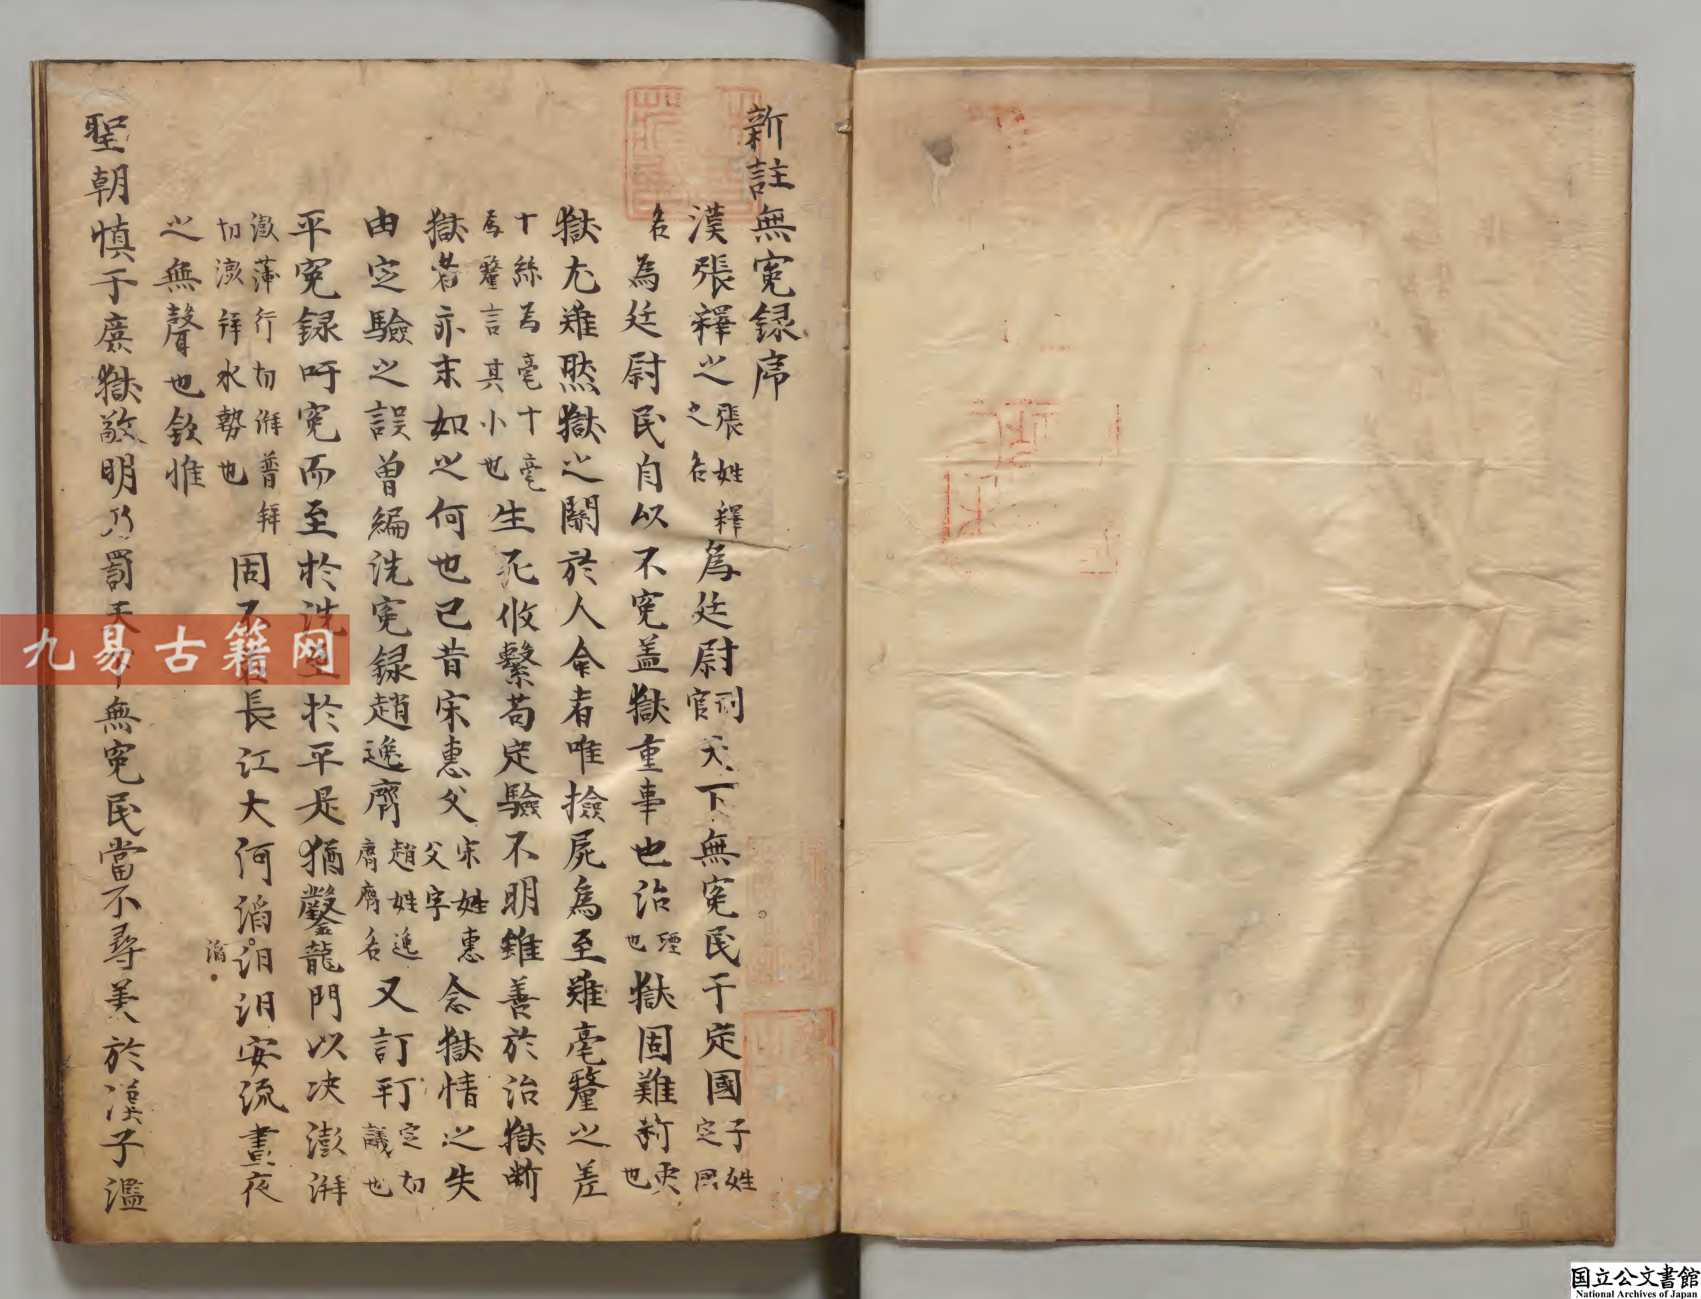 新註無寃録序
漢張釋之張姓釋之名為廷尉刑官天下無寃民于定國于姓定國
名為廷尉民自以不寃盖獄重事也治理也獄固難断夬也
獄尤難然獄之關於人命者唯撿屍為至難毫釐之差
十絲為毫十毫為釐言其小也生死攸繫苟定驗不明雖善於治獄断
獄者亦末如之何也已昔宋惠父宋姓惠父字念獄情之失
由定驗之誤曾編洗寃録趙逸齋趙姓逸齋名又訂平丁定切議也
平寃録吁寃而至於洗至於平是猶鑿龍門以决澎湃
澎蒲行切湃普拜切澎拜水勢也固不長江大河滔汨汨安流晝夜
滔
之無聲也欽惟
聖朝慎于庶獄敬明乃罰天無寃民當不尋美於漢于濫
九易古籍网
国立公文書館
National Archives of Japan